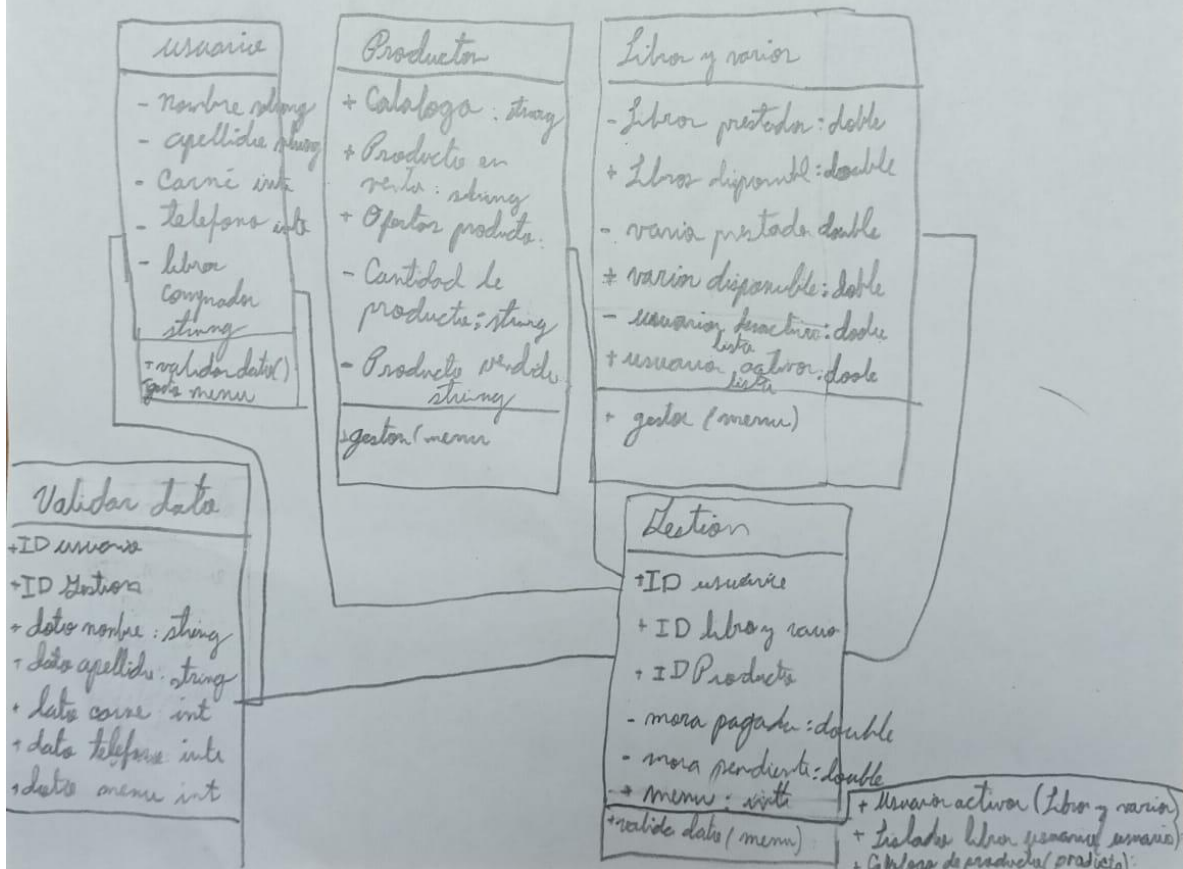 usuario
- nombre string
- apellido string
- Carné int
- telefono int
- libros
comprados
string
+ validar dato()
menu
Productos
+ Catalogo : string
+ Producto en
venta : string
+ Ofertas producto :
- Cantidad de
producto ; string
- Producto vendido
string
gestion (menu
Libros y varios
- Libros prestados : doble
+ Libros disponibl : double
- varios prestado double
+ varios disponible : doble
- usuarios
lista
+ usuario activos :
lista
+ gestor (menu)
Validar dato
+ ID usuario
+ ID
+ dato nombre : string
+ dato apellido : string
+ dato carne int
+ dato telefono inte
+ dato menu int
Gestion
+ ID usuario
+ ID libro y vario
+ ID Producto
- mora pagada : double
- mora pendiente : double
+ menu : inte
+ valida dato (menu)
+ Usuario activos (Libros y varios)
+ Listados libros (usuario)
+ Catalogo de producto (producto) :